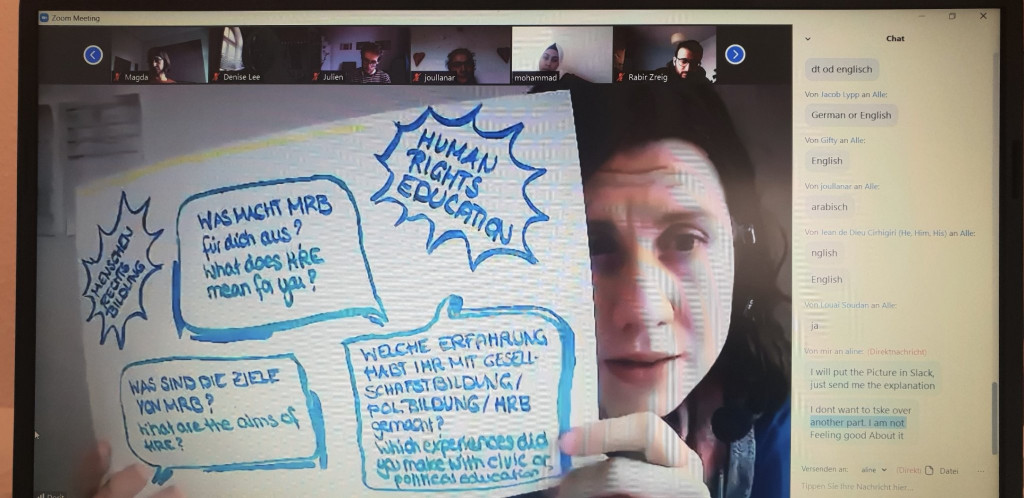 Zoom Meeting
Magda
Denise Lee
Julien
joullanar
mohammad
Rabir Zreig
HUMAN
RIGHTS
EDUCATION
MENSCHEN
RECHTS
BILDUNG
WAS MACHT MRB
für dich aus?
What does HRE
mean for you?
WAS SIND DIE ZIELE
VON MRB?
What are the aims of
HRE?
WELCHE ERFAHRUNG
HABT IHR MIT GESELL-
SCHAFSTBILDUNG/
POL.BILDUNG/MRB
gemacht?
Which experiences did
you make with civic or
political education?
Chat
dt od englisch
Von Jacob Lypp an Alle:
German or English
Von Gifty an Alle:
English
Von joullanar an Alle:
arabisch
Von Jean de Dieu Cirhigiri (He, Him, His) an Alle:
nglish
English
Von Louai Soudan an Alle:
ja
Von mir an aline: (Direktnachricht)
I will put the Picture in Slack,
just send me the explanation
I dont want to tske over
another part. I am not
Feeling good About it
Versenden an: aline (Direkt Datei ...
Tippen Sie Ihre Nachricht hier...